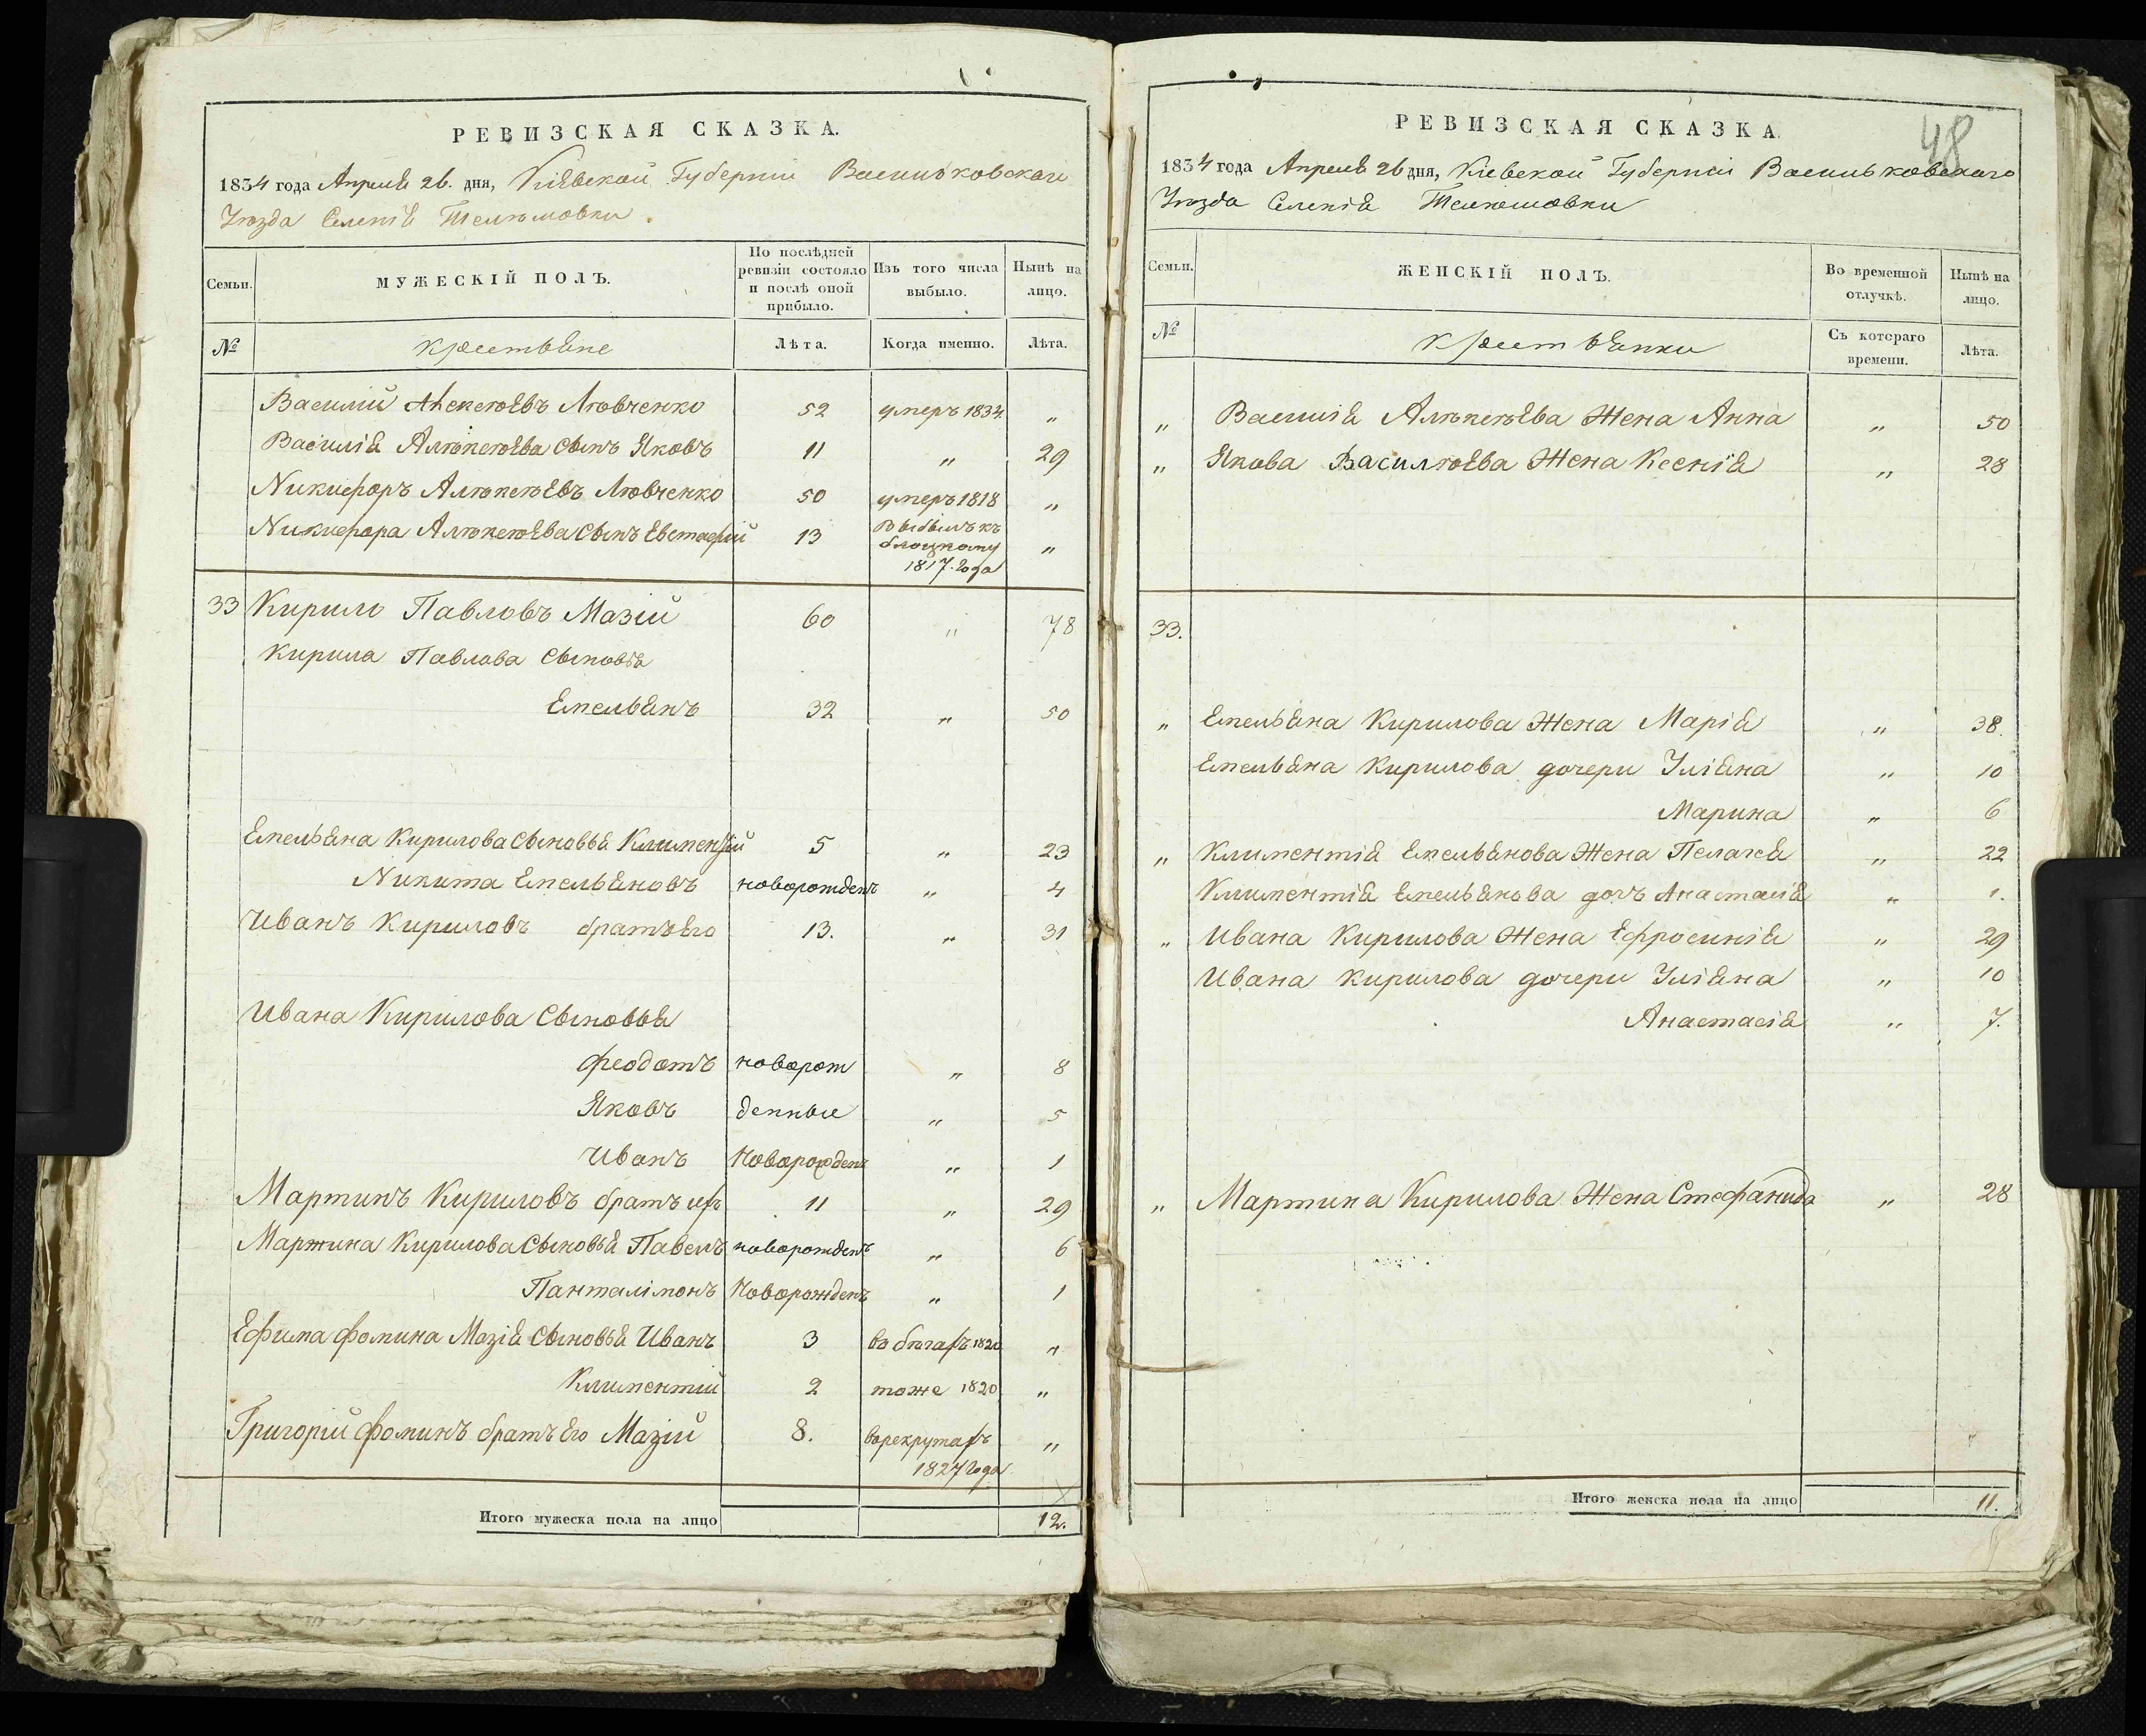 РЕВИЗСКАЯ СКАЗКА.
1834 года Апреля 26. дня, Кіевской Губерніи Васильковскаго
Уезда Селенія
Семьи. МУЖЕСКІЙ ПОЛЪ. По послѣдней ревизіи состояло и послѣ оной прибыло. Изъ того числа выбыло. Нынѣ на лицо.
№ крестьяне Лѣта. Когда именно. Лѣта.
Василий Алексеевъ Ловченко 52 умеръ 1834 „
Василія Алексеева сынъ Яковъ 11 „ 29
Никифоръ Алексеевъ Ловченко 50 умеръ 1818 „
Никифора Алексеева сынъ Евстафий 13 Выбылъ къ
1817. года „
33 Кирило Павловъ Мазій 60 „ 78
Кирила Павлова сыновья
Емельянъ 32 „ 50
Емельяна Кирилова сыновья Климентій 5 „ 23
Никита Емельяновъ новорожденъ „ 4
Иванъ Кириловъ братъ его 13. „ 31
Ивана Кирилова сыновья
Феодотъ новорож „ 8
Яковъ денные „ 5
Иванъ Новорожденъ „ 1
Мартинъ Кириловъ братъ ихъ 11 „ 29
Мартина Кирилова сыновья Павелъ новорожденъ „ 6
Панталімонъ Новорожденъ „ 1
Ефима Фомина Мазія сыновья Иванъ 3 в бегахъ 1820 „
Климентий 2 тоже 1820 „
Григорій Фоминъ братъ его Мазій 8. в рекрутахъ
1827 года „
Итого мужеска пола на лицо 12.
48
РЕВИЗСКАЯ СКАЗКА.
1834 года Апреля 26 дня, Кіевской Губерніи Васильковскаго
Уезда Селенія
Семьи. ЖЕНСКІЙ ПОЛЪ. Во временной отлучкѣ. Нынѣ на лицо.
№ крестьянки Съ котораго времени. Лѣта.
„ Василія Алексеева Жена Анна „ 50
„ Якова Василиева Жена Ксенія „ 28
33.
„ Емельяна Кирилова Жена Марія „ 38.
Емельяна Кирилова дочери Уліяна „ 10
Марина „ 6
„ Климентія Емельянова Жена Пелагея „ 22
Климентія Емельянова дочь Анастасія „ 1.
„ Ивана Кирилова Жена Ефросинія „ 29
Ивана Кирилова дочери Уліяна „ 10
Анастасія „ 7.
„ Мартина Кирилова Жена Стефанида „ 28
Итого женска пола на лицо 11.